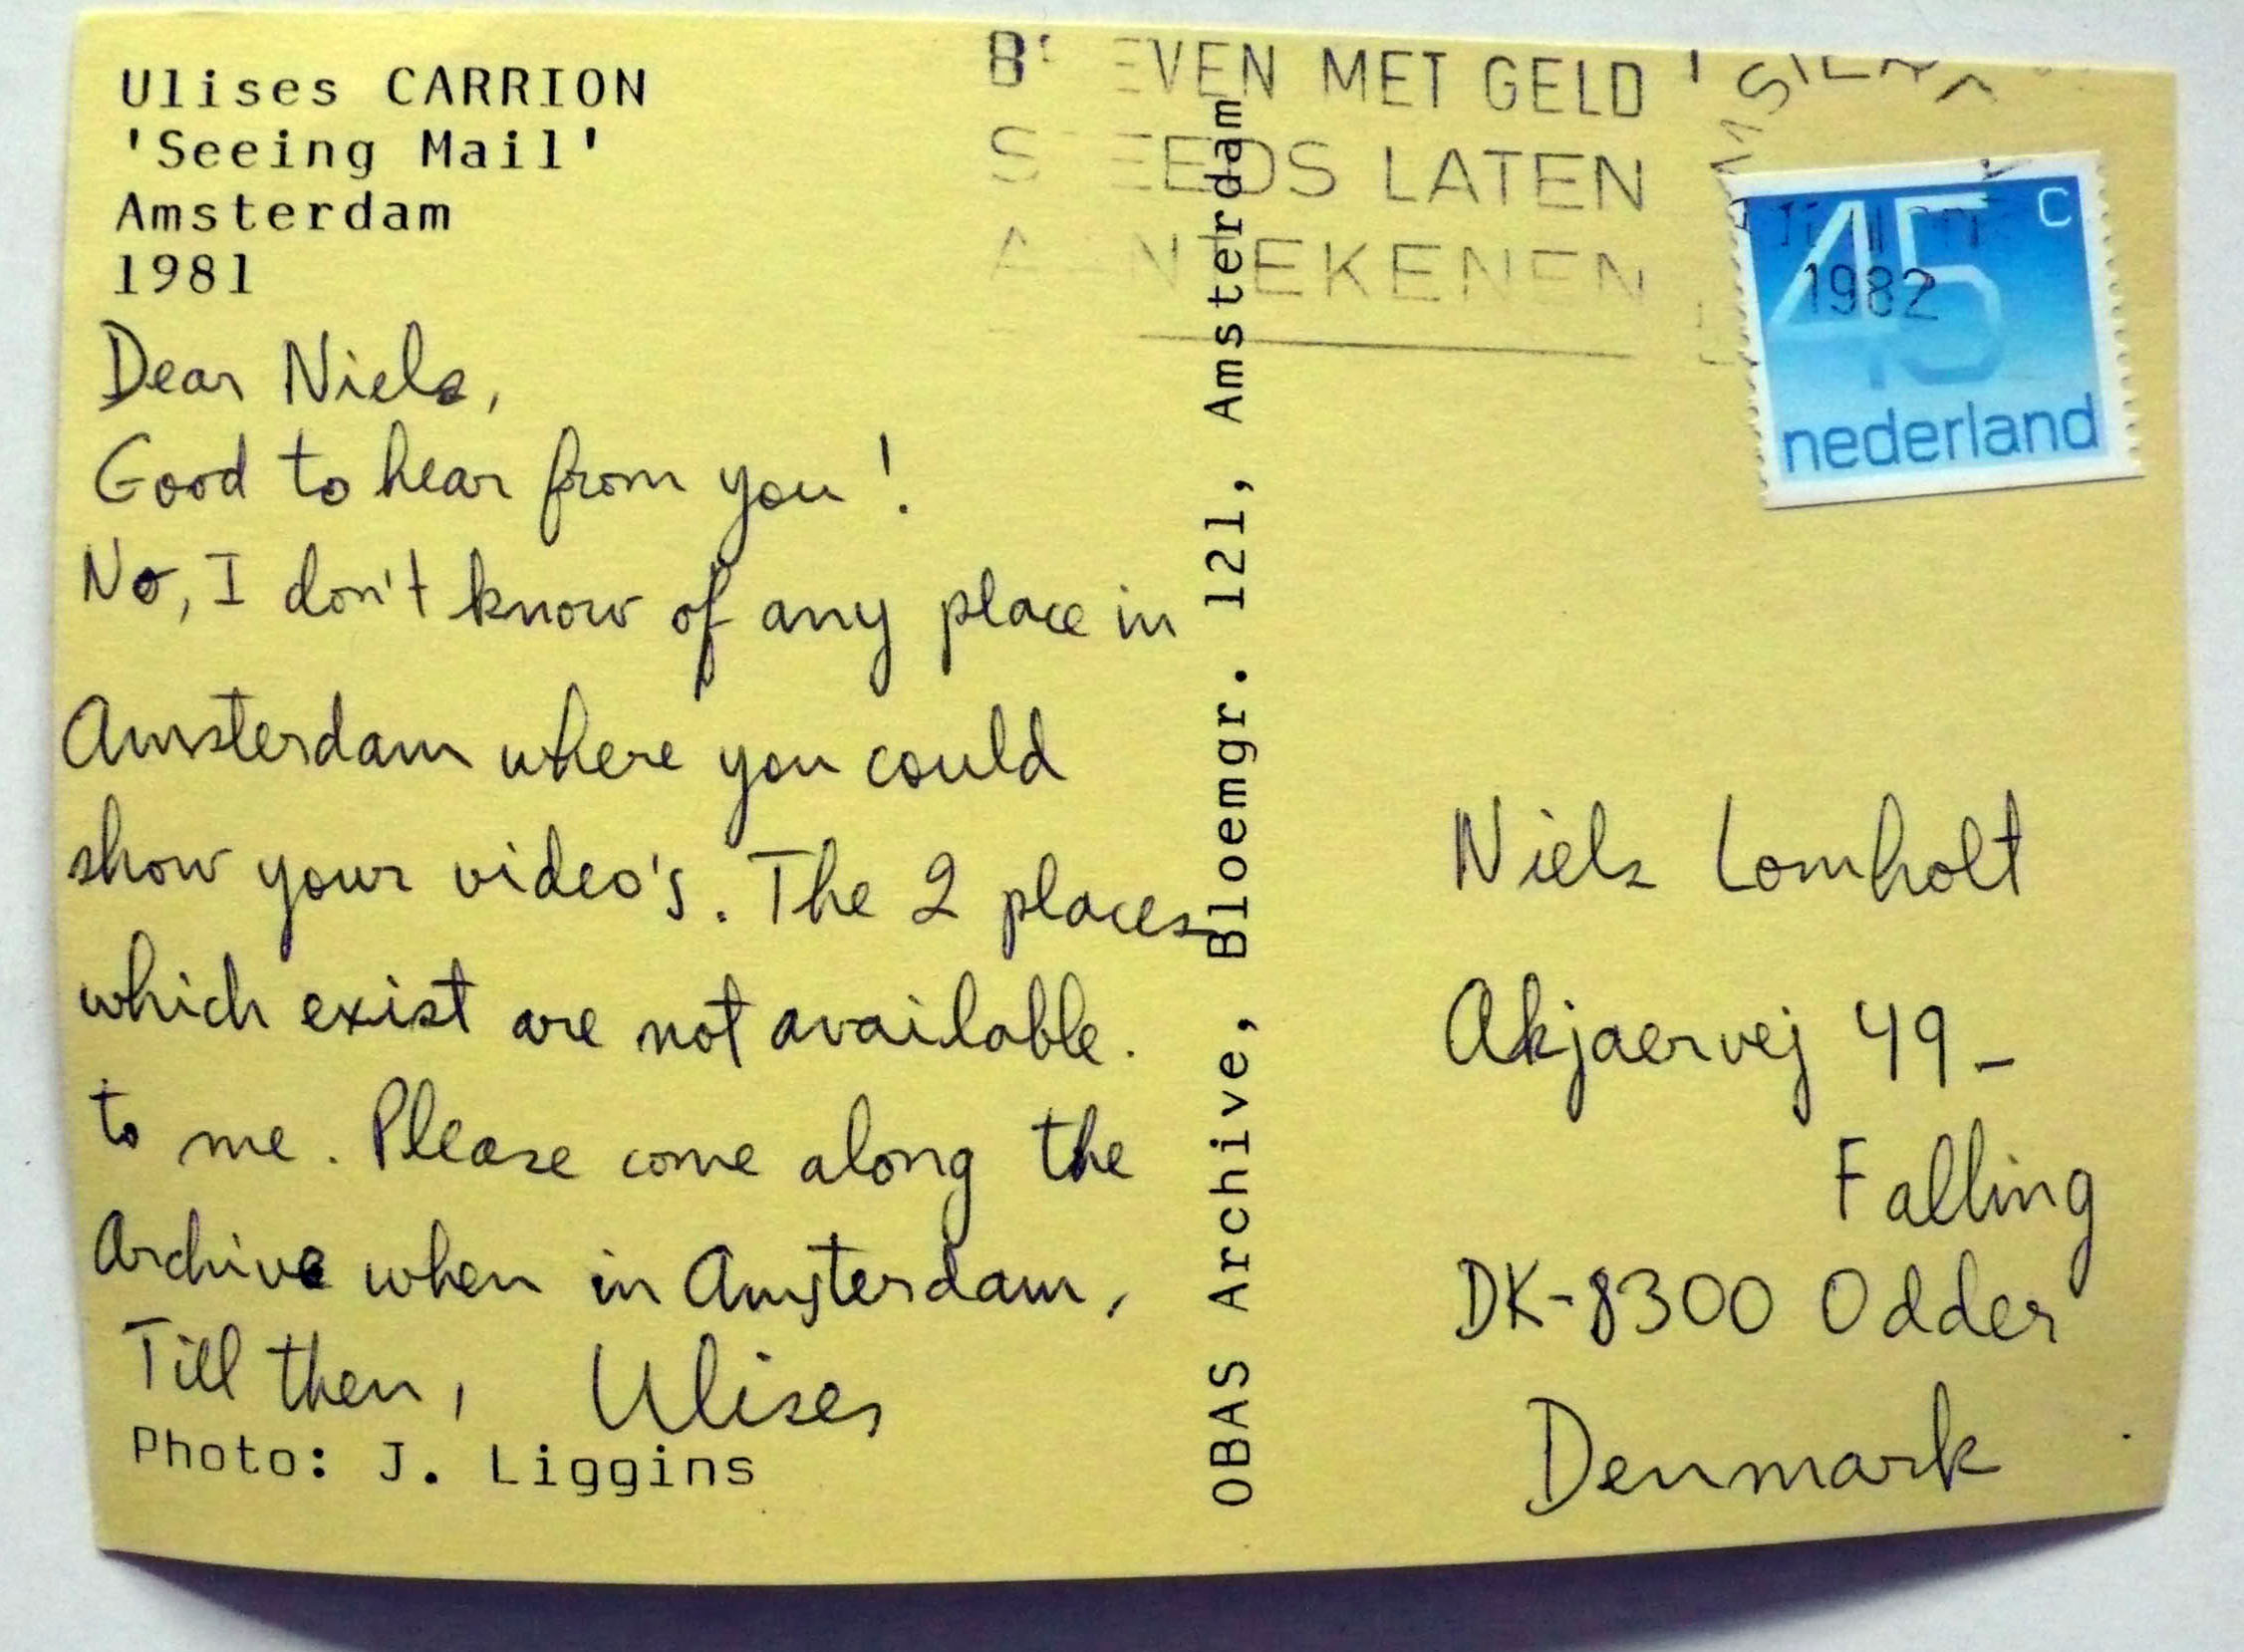 Ulises CARRION
'Seeing Mail'
Amsterdam
1981
Dear Niels,
Good to hear from you!
No, I don't know of any place in
Amsterdam where you could
show your video's. The 2 places
which exist are not available.
to me. Please come along the
Archive when in Amsterdam,
Till then, Ulises
Photo: J. Liggins
OBAS Archive, Bloemgr. 121, Amsterdam
MET GELD
LATEN
1982
45 c
nederland
Niels Lomholt
Akjaervej 49-
Falling
DK-8300 Odder
Denmark